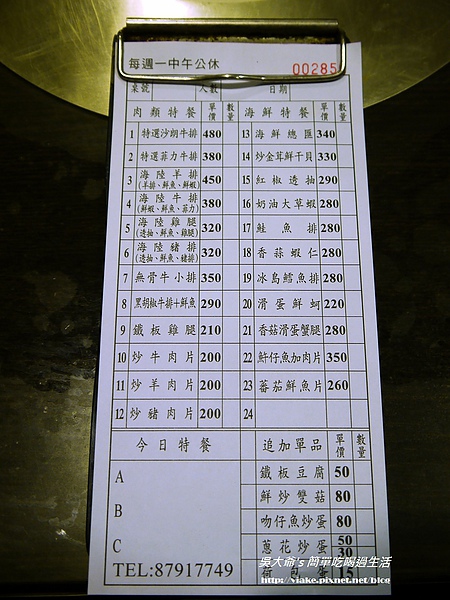 每週一中午公休
00285
桌號 人數 日期
肉類特餐 單價 數量 海鮮特餐 單價 數量
1 特選沙朗牛排 480 13 海鮮總匯 340
2 特選菲力牛排 380 14 炒金茸鮮干貝 330
3 海陸羊排 (羊排、鮮魚、鮮蝦) 450 15 紅椒透抽 290
4 海陸牛排 (鮮蝦、鮮魚、菲力) 380 16 奶油大草蝦 280
5 海陸雞腿 (透抽、鮮魚、雞腿) 320 17 鮭魚排 280
6 海陸豬排 (透抽、鮮魚、豬排) 320 18 香蒜蝦仁 280
7 無骨牛小排 350 19 冰島鱈魚排 280
8 黑胡椒牛排+鮮魚 290 20 滑蛋鮮蚵 220
9 鐵板雞腿 210 21 香菇滑蛋蟹腿 280
10 炒牛肉片 200 22 魩仔魚加肉片 350
11 炒羊肉片 200 23 蕃茄鮮魚片 260
12 炒豬肉片 200 24
今日特餐 追加單品 單價 數量
A 鐵板豆腐 50
鮮炒雙菇 80
B 吻仔魚炒蛋 80
C 蔥花炒蛋 50 30
荷包蛋 15
TEL:87917749
吳大爺's 簡單吃喝過生活
http://viake.pixnet.net/blog